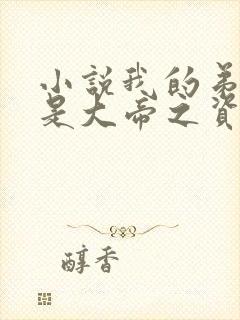 小説我的弟
是大帝之資
醇香